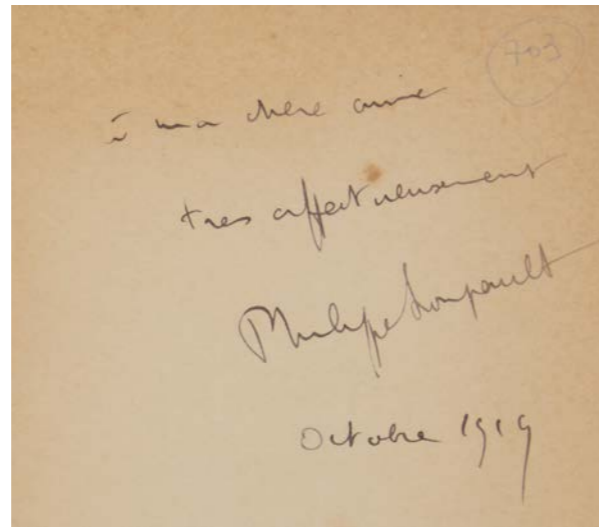 703
à ma chère amie
très affectueusement
Philippe Soupault
Octobre 1919